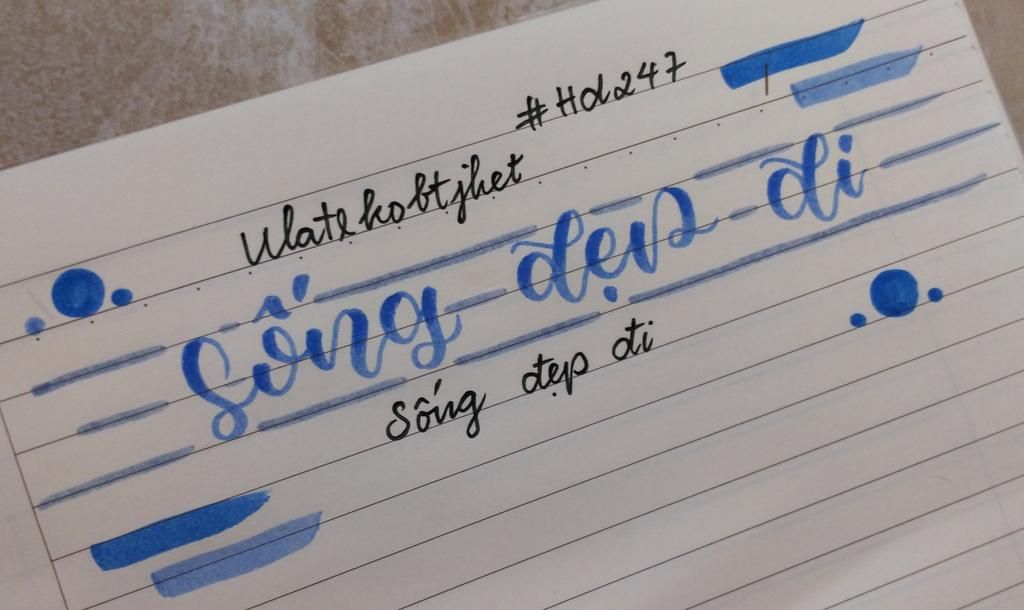 #Hd247
Ulatekobtjhet
sống đẹp đi
sống đẹp đi